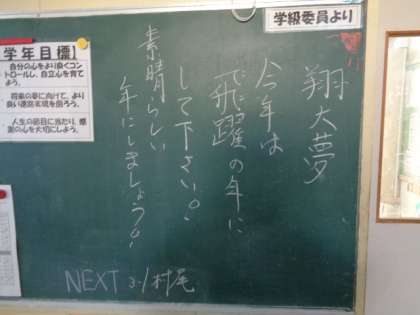 学級委員より
翔大夢
今年は
飛躍の年に
して下さい。
素晴らしい
年にしましょう!
NEXT 3-1 村尾
学年目標
自分の心をより良くコン
トロールし、自立心を育て
よう。
将来の夢に向けて、より
良い進路実現を図ろう。
人生の節目に当たり、感
謝の心を大切にしよう。